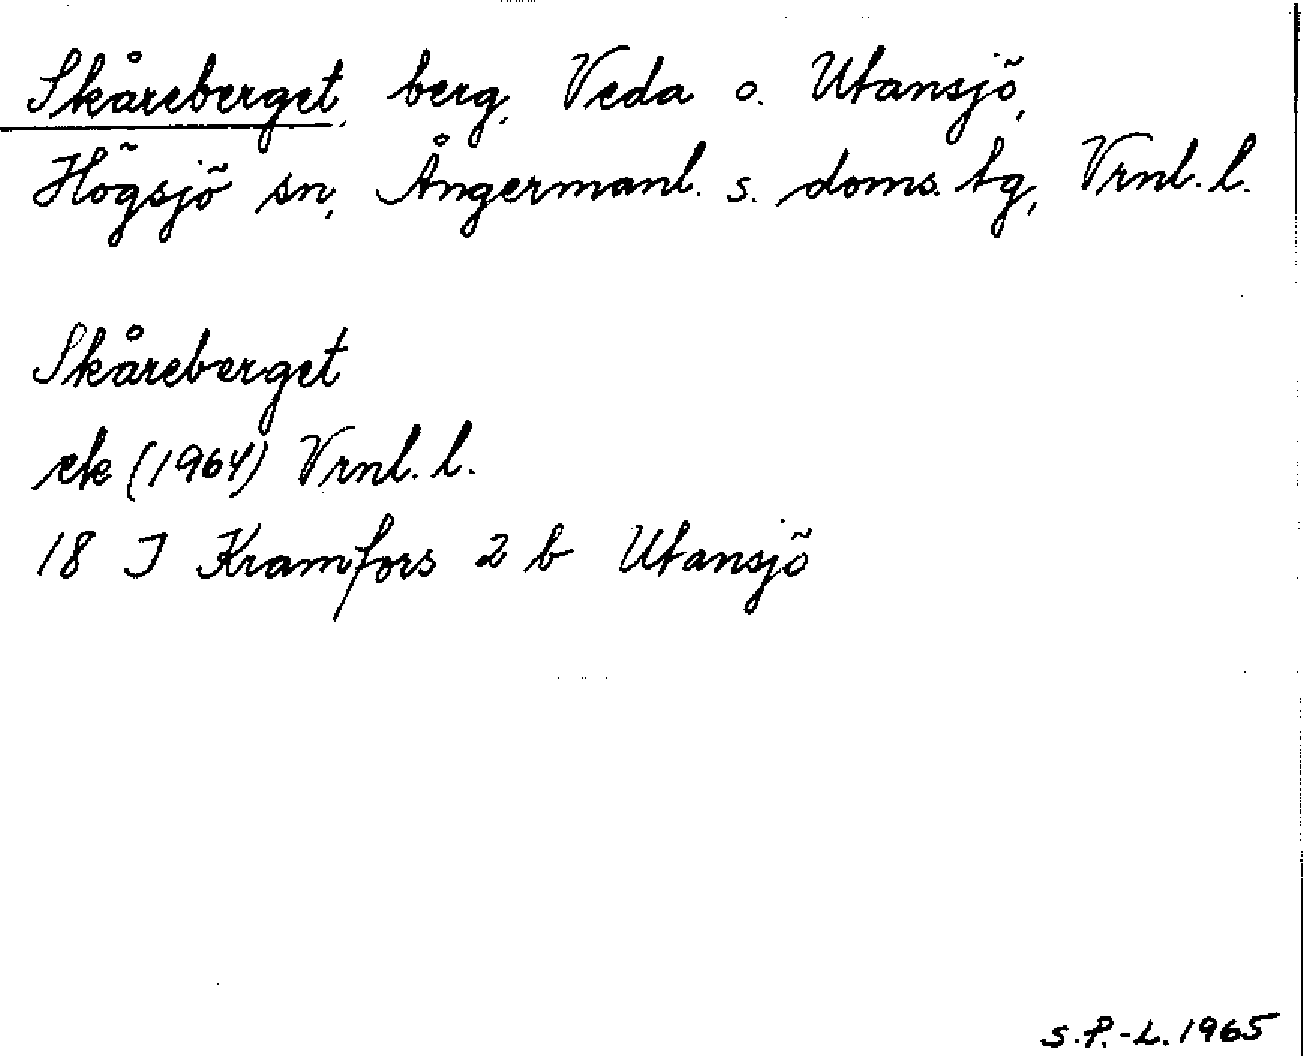 Skåreberget, berg, Veda o. Utansjö,
Högsjö sn, Ångermanl. s. doms. tg, Vrnl. l.
Skåreberget
ek (1964) Vrnl. l.
18 I Kramfors 2 b Utansjö
S.P.-L. 1965